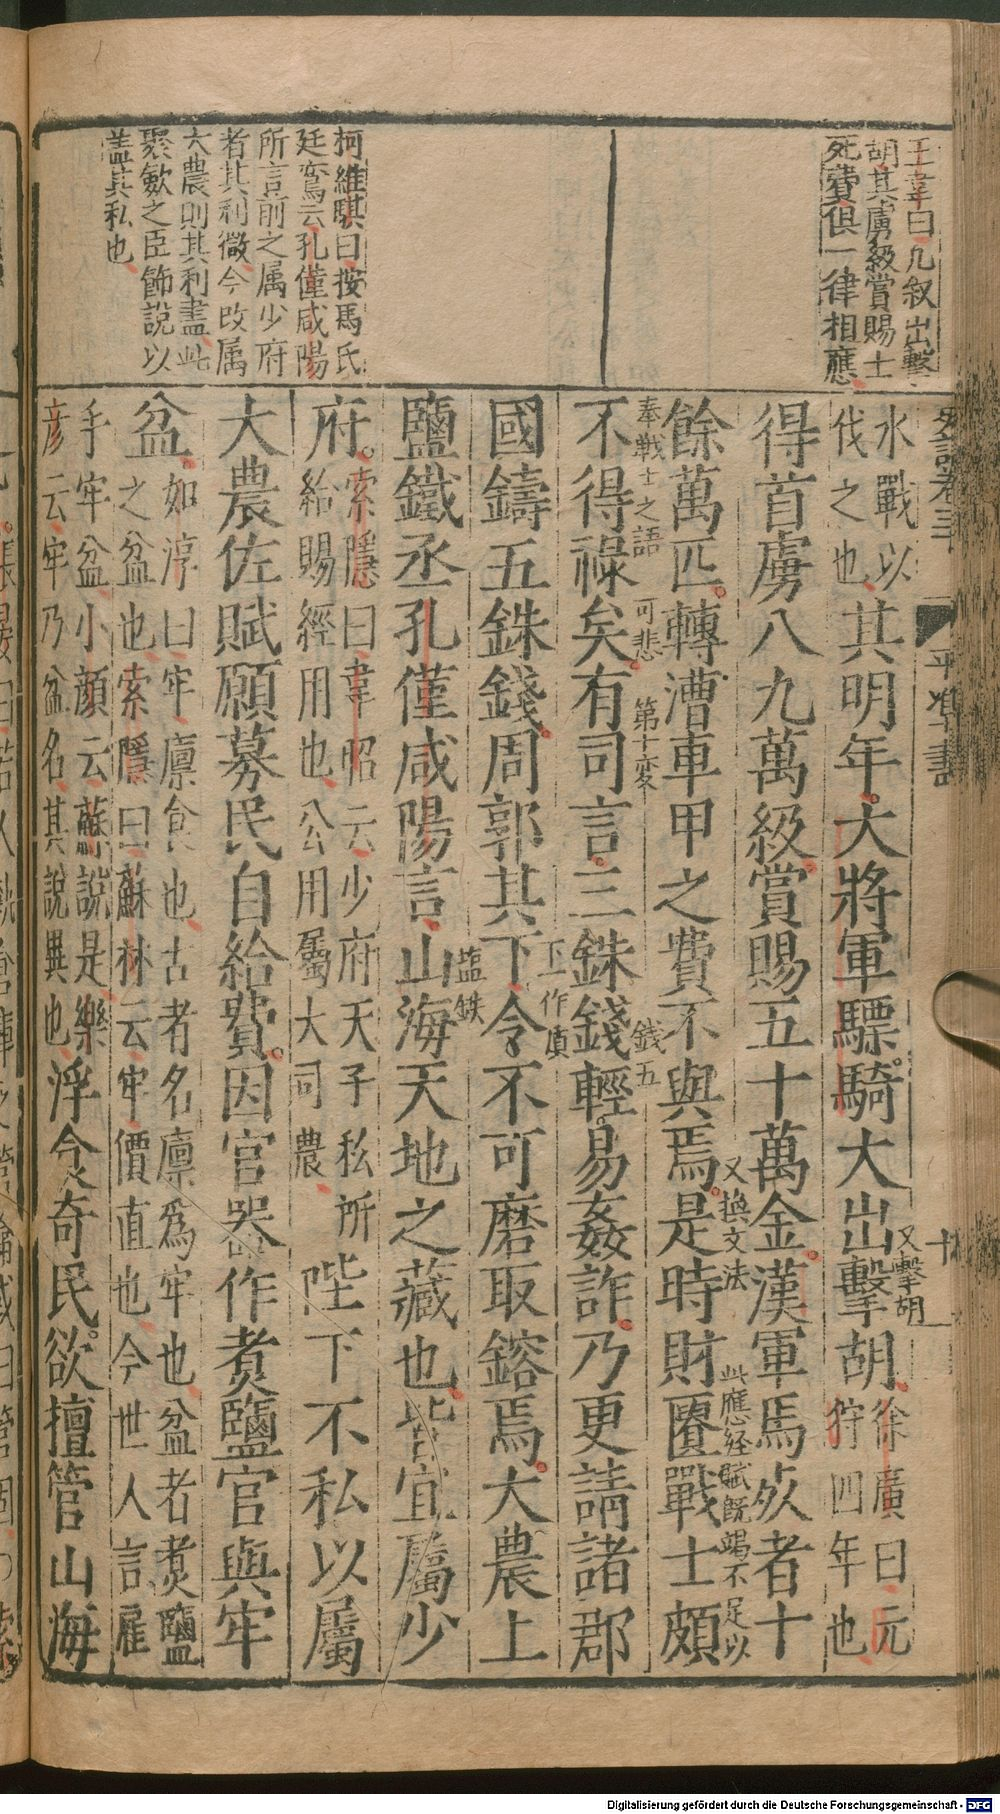 王韋曰凡叙出擊
胡其虜級賞賜士
死費俱一律相應
柯維騏曰按馬氏
廷鸞云孔僅咸陽
所言前之属少府
者其利微今改属
大農則其利盡此
聚斂之臣飾說以
盖其私也
平準書
水戰以
伐之也
其明年大將軍驃騎大出擊胡
又擊胡
徐廣曰元
狩四年也
得首虜八九萬級賞賜五十萬金漢軍馬死者十
餘萬匹轉漕車甲之費不與焉是時財匱戰士頗
又換文法
此應経賦既竭不足以
奉戰士之語
可悲
第十変
錢五
不得祿矣有司言三銖錢輕易姦詐乃更請諸郡
國鑄五銖錢周郭其下令不可磨取鎔焉大農上
下作質
塩鉄
鹽鐵丞孔僅咸陽言山海天地之藏也皆宜屬少
府
索隱曰韋昭云少府天子私所
給賜經用也公用屬大司農
陛下不私以屬
大農佐賦願募民自給費因官器作煑鹽官與牢
盆
如淳曰牢廪食也古者名廪爲牢也盆者煑鹽
之盆也索隱曰蘇林云牢價直也今世人言雇
手牢盆小顔云蘇說是樂
彦云牢乃盆名其說異也
浮食奇民欲擅管山海
Digitalisierung gefördert durch die Deutsche Forschungsgemeinschaft - DFG